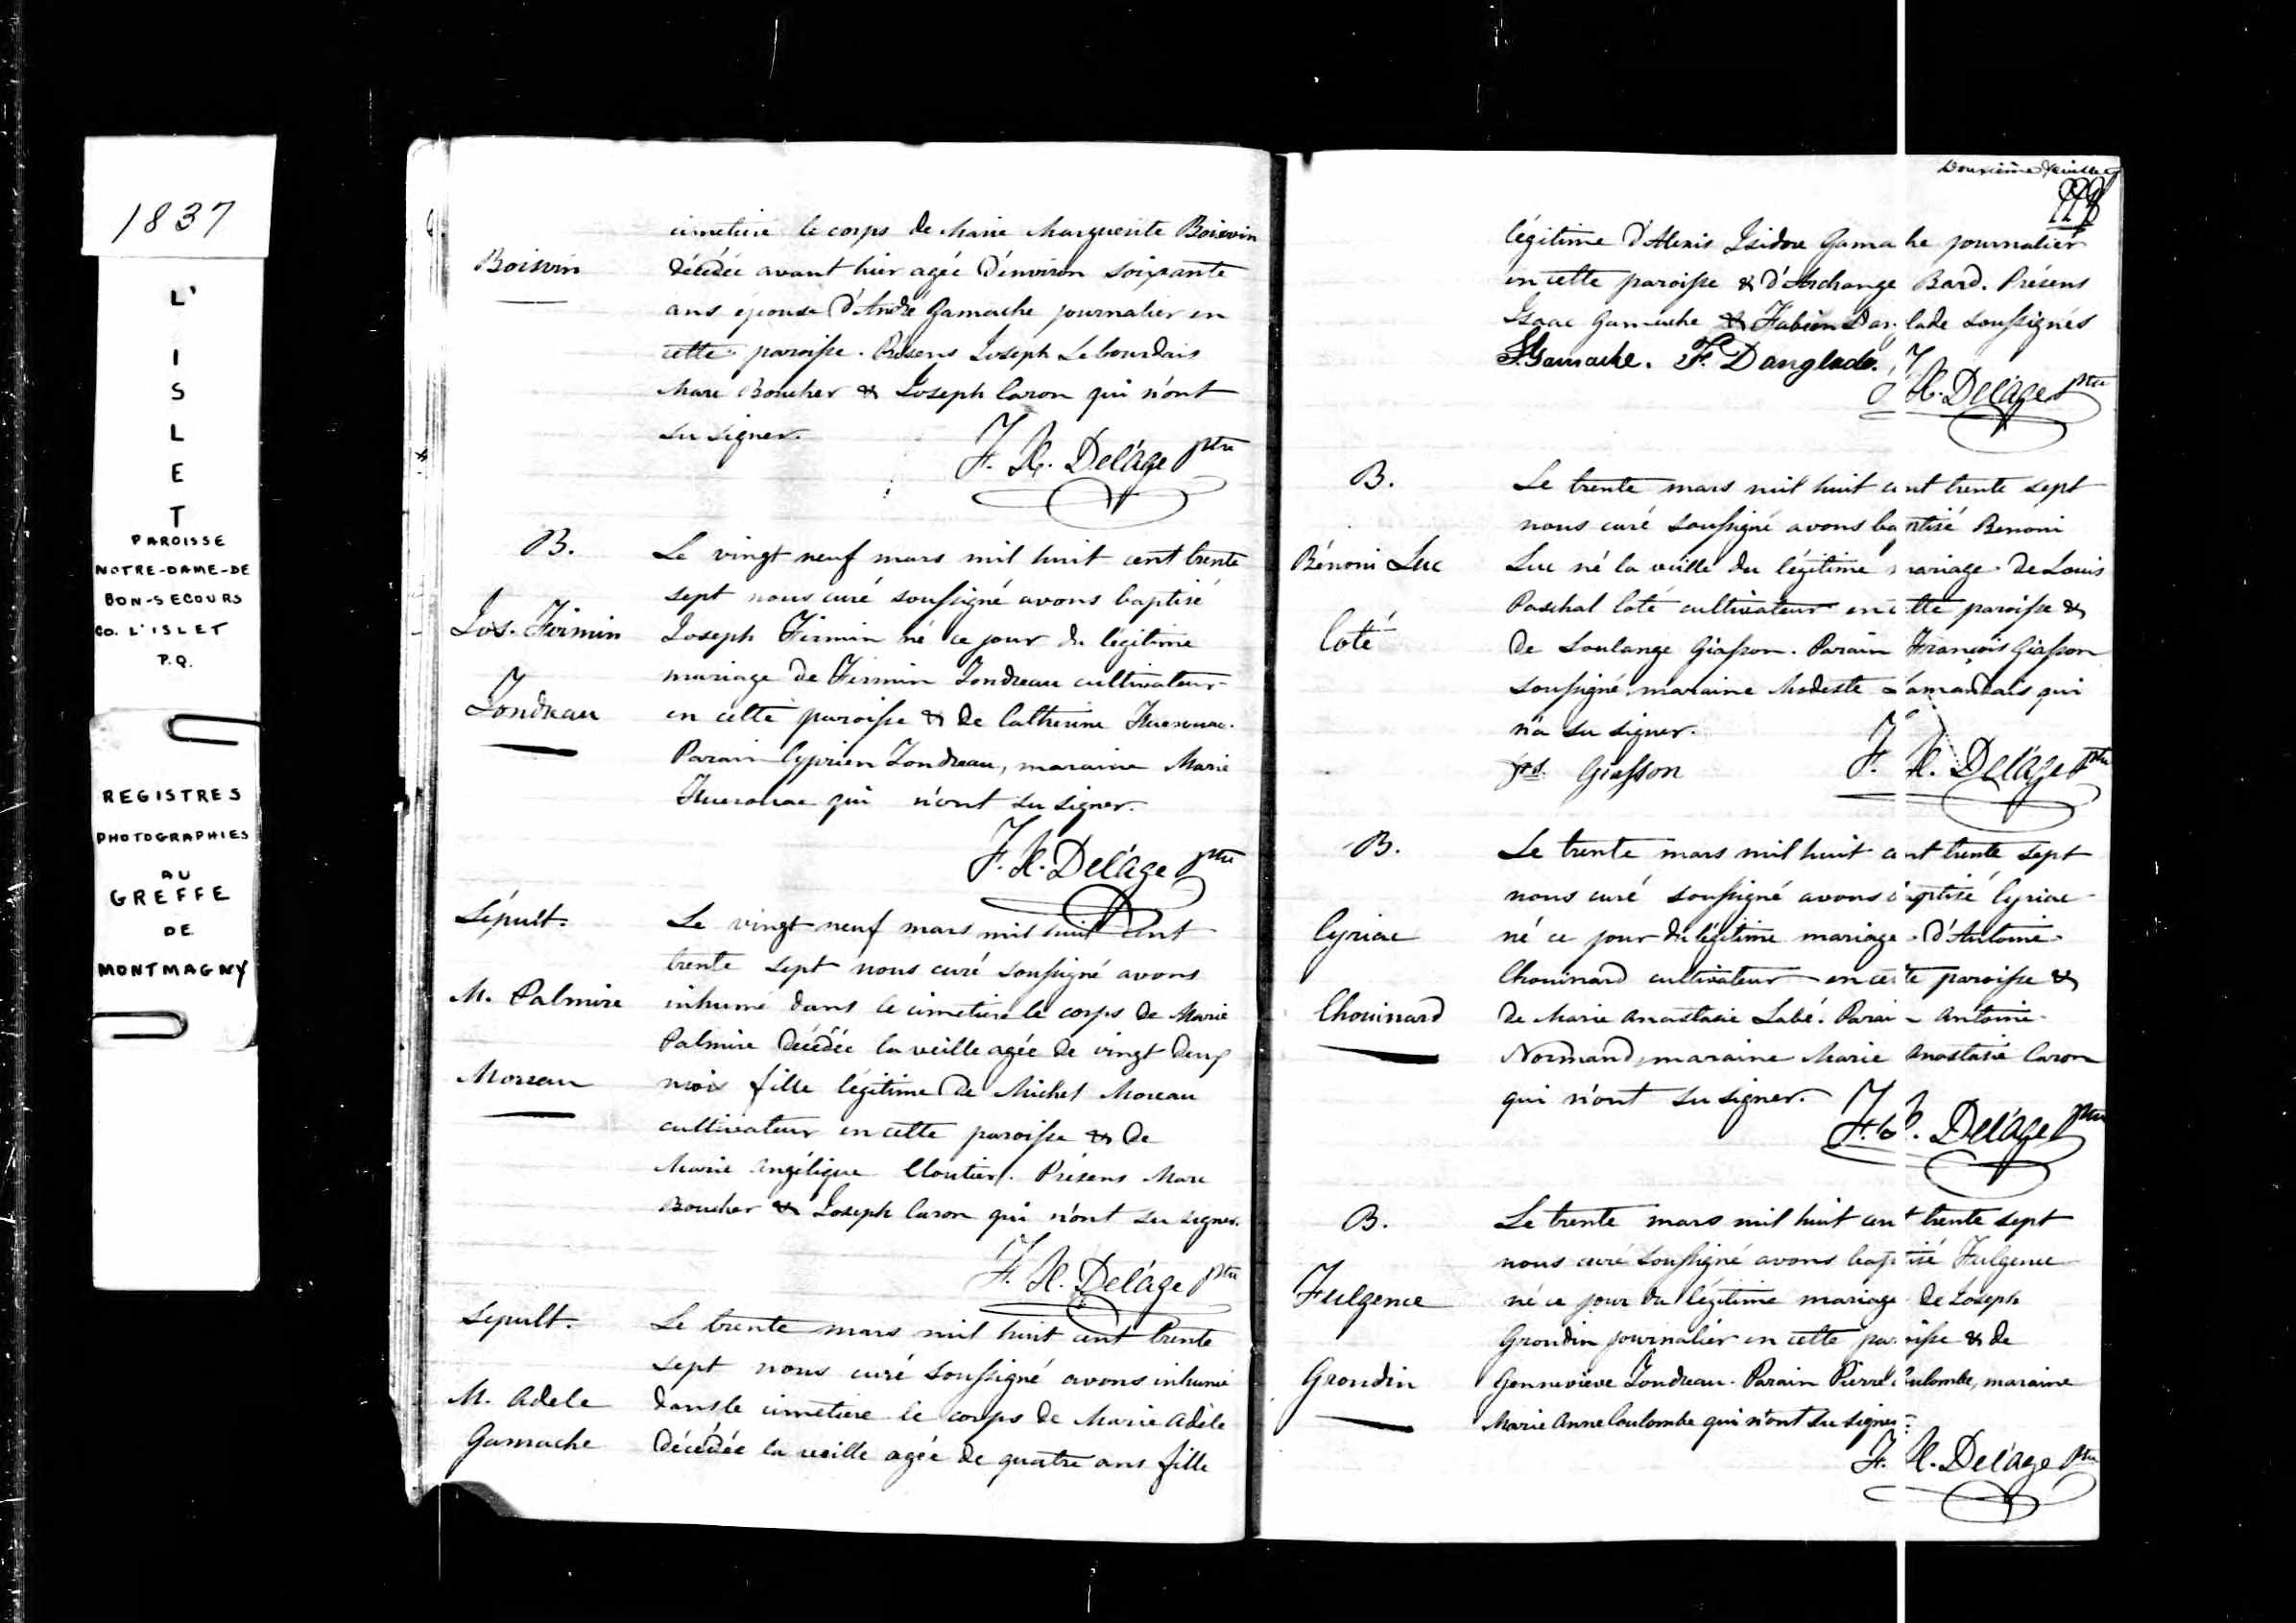 1837
L'
I
S
L
E
T
PAROISSE
NOTRE-DAME-DE
BON-SECOURS
CO. L'ISLET
P.Q.
REGISTRES
PHOTOGRAPHIES
AU
GREFFE
DE
MONTMAGNY
Boisvin
cimetière le corps de Marie Marguerite Boisvin
décédée avant hier agée d'environ soixante
ans épouse d'André Gamache journalier en
cette paroisse. Présens Joseph Lebourdais
Marc Boucher & Joseph Caron qui n'ont
su signer.
F. H. Delâge ptre
B.
Jos. Firmin
Tondreau
Le vingt neuf mars mil huit cent trente
sept nous curé soussigné avons baptisé
Joseph Firmin né ce jour du légitime
mariage de Firmin Tondreau cultivateur
en cette paroisse & de Catherine
Parain Cyprien Tondreau, maraine Marie
qui n'ont su signer.
F. H. Delâge ptre
Sépult.
M. Palmire
Moreau
Le vingt neuf mars mil huit cent
trente sept nous curé soussigné avons
inhumé dans le cimetière le corps de Marie
Palmire décédée la veille agée de vingt deux
mois fille légitime de Michel Moreau
cultivateur en cette paroisse & de
Marie Angélique Cloutier. Présens Marc
Boucher & Joseph Caron qui n'ont su signer.
F. H. Delâge ptre
Sépult.
M. Adele
Gamache
Le trente mars mil huit cent trente
sept nous curé soussigné avons inhumé
dans le cimetière le corps de Marie Adèle
décédée la veille agée de quatre ans fille
Douzième feuillet
légitime d'Alexis Isidore Gamache journalier
en cette paroisse & d'Archange Bard. Présens
Isaac Gamache & Fabien Danglade soussignés
I. Gamache. F. Danglade.
F. H. Delâge ptre
B.
Bénoni Luc
Coté
Le trente mars mil huit cent trente sept
nous curé soussigné avons baptisé Benoni
Luc né la veille du légitime mariage de Louis
Paschal Coté cultivateur en cette paroisse &
de Soulange Giasson. Parain François Giasson
soussigné, maraine Modeste Lamandais qui
n'a su signer.
frs. Giasson
F. H. Delâge ptre
B.
Cyriac
Chouinard
Le trente mars mil huit cent trente sept
nous curé soussigné avons baptisé Cyriac
né ce jour du légitime mariage d'Antoine
Chouinard cultivateur en cette paroisse &
de Marie Anastasie Labé. Parain Antoine
Normand, maraine Marie Anastasie Caron
qui n'ont su signer.
F. H. Delâge ptre
B.
Fulgence
Grondin
Le trente mars mil huit cent trente sept
nous curé soussigné avons baptisé Fulgence
né ce jour du légitime mariage de Joseph
Grondin journalier en cette paroisse & de
Gennevieve Tondreau. Parain Pierre Coulombe, maraine
Marie Anne Coulombe qui n'ont su signer.
F. H. Delâge ptre